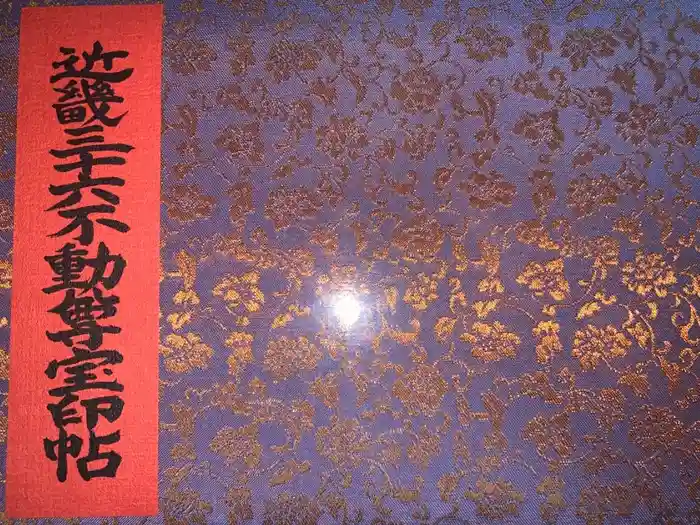 近畿三十六不動尊宝印帖